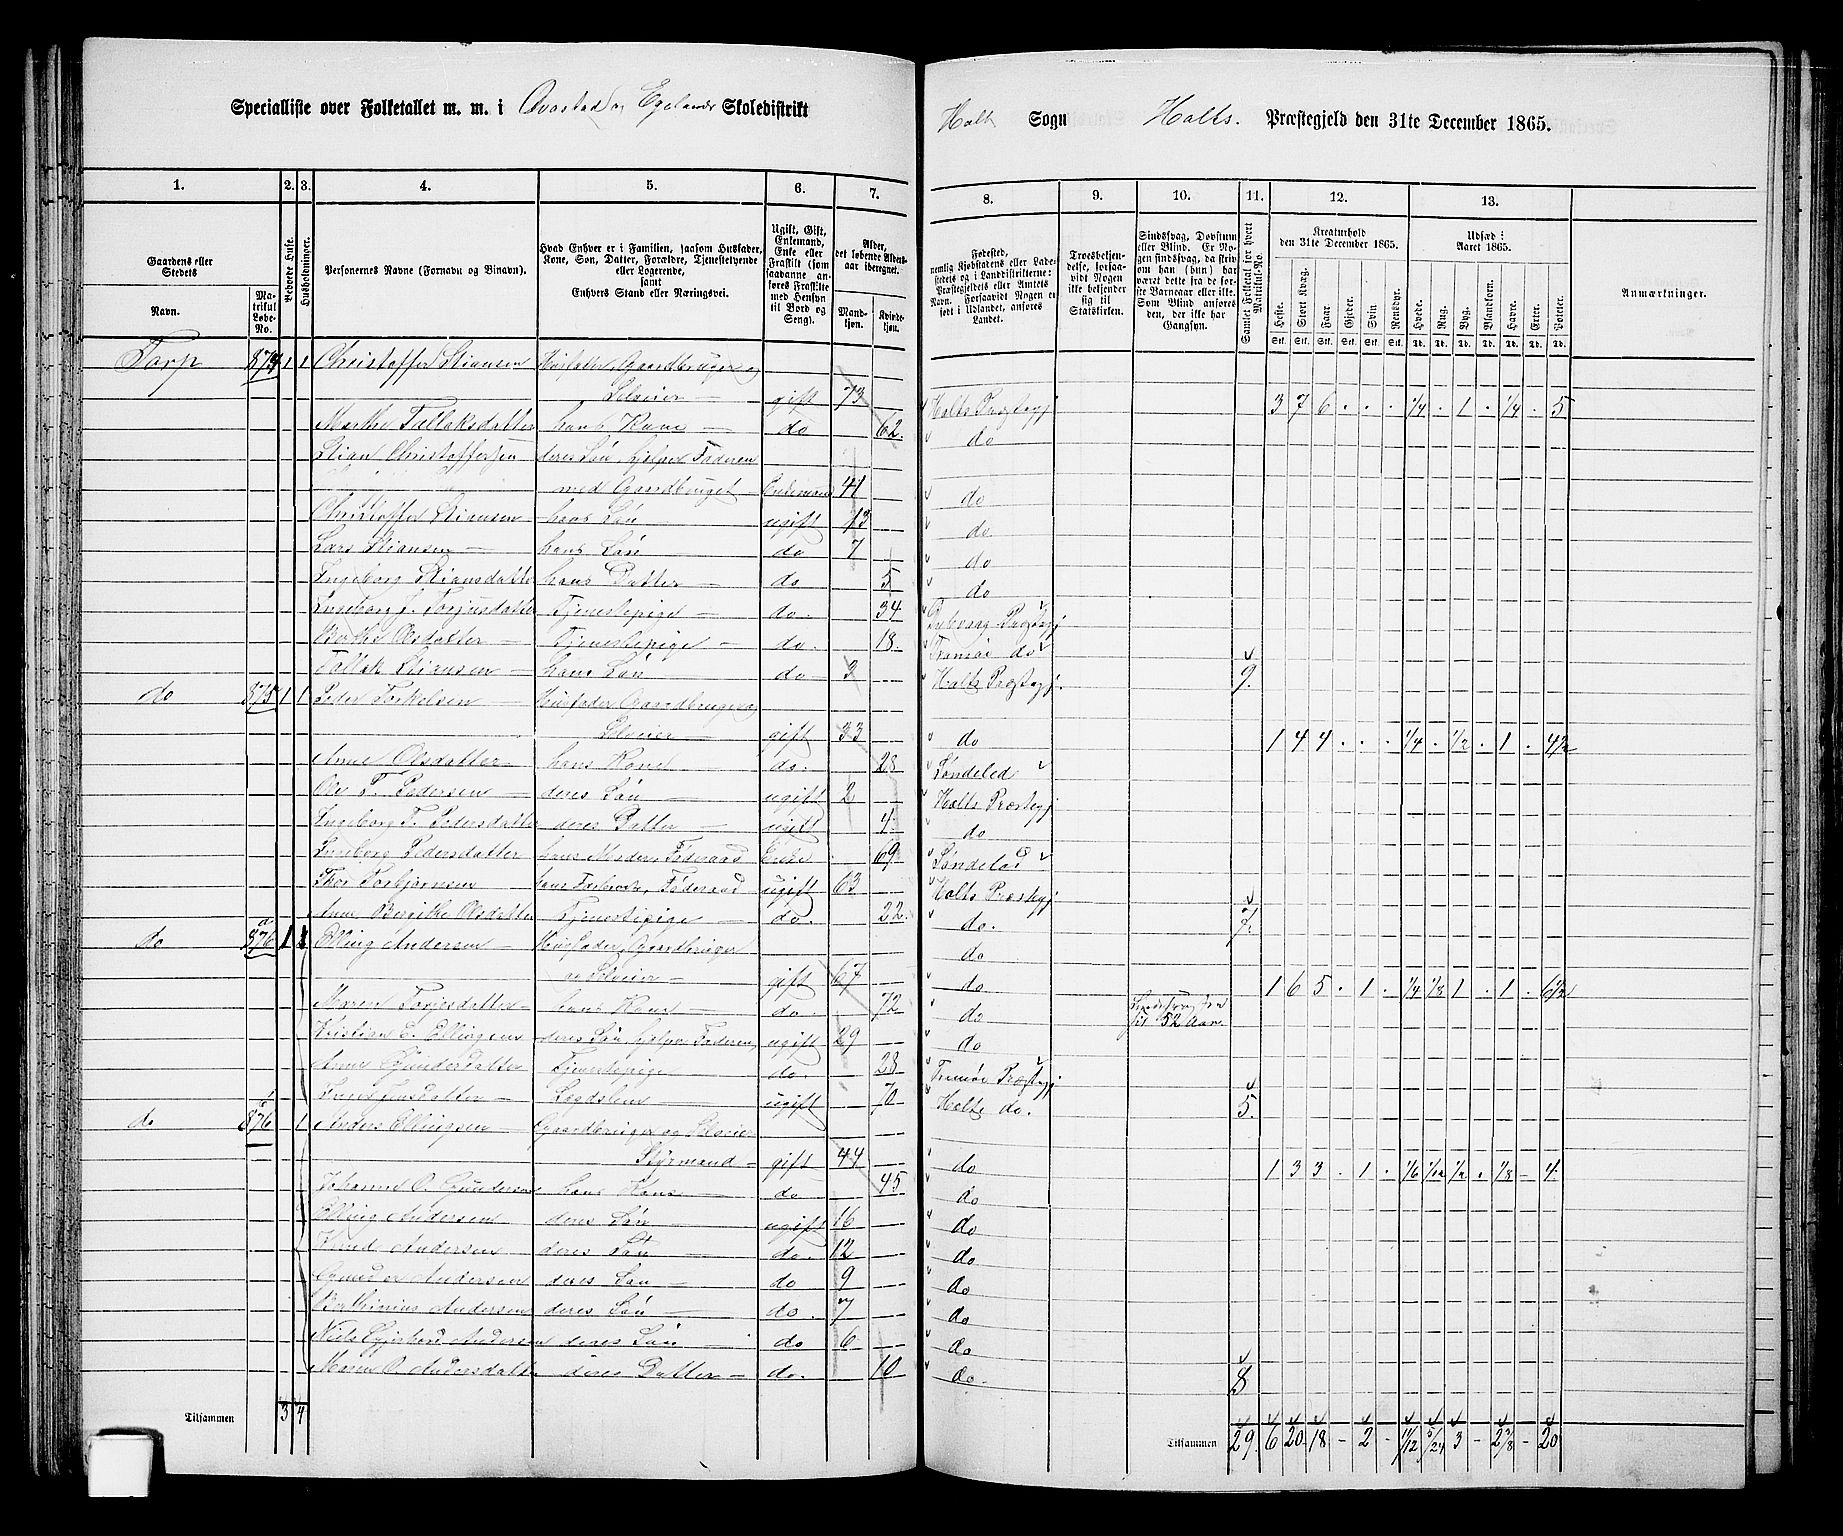 Specialliste over Folketallet m. m. i Qvastad og Egelands Skoledistrikt
Halt Sogn Holts. Præstegjeld den 31te December 1865.
1. 2. 3. 4. 5. 6. 7.
8. 9. 10. 11. 12. 13.
Gaardens eller Stedets
Navn.
Matrikul Løbe-No.
Beboede Huse.
Husholdninger.
Personernes Navne (Fornavn og Tilnavn).
Hvad Enhver er i Familien, saasom Husfader, Kone, Søn, Datter, Forældre, Tjenestetyende eller Logerende, samt Enhvers Stand eller Næringsvei.
Ugift, Gift, Enkemand, Enke eller Fraskilt
Alder, det løbende Aldersaar iberegnet.
Mandkjøn. Kvindekjøn.
Fødested, nemlig Kjøbstadens eller Ladestedets og i Landdistrikterne: Præstegjeldets eller Amtets Navn. Forsaavidt Nogen er født i Udlandet, anføres Landet.
Troesbekjendelse, forsaavidt Nogen ikke bekjender sig til Statskirken.
Sindssvag, Døvstum eller Blind.
Samlet Folketal for hvert Matrikul-No.
Kreaturhold den 31te December 1865.
Heste. Stort Kvæg. Faar. Gjeder. Svin. Rensdyr.
Udsæd i Aaret 1865.
Hvede. Rug. Byg. Blandkorn. Havre. Erter. Poteter.
Anmærkninger.
Torp 874 1 1 Christoffer Stiansen Husfader, Gaardbruger og
Selveier gift 73 Holts Præstegj 3 7 6 . . . 1/4 . 1 . 1/4 . 5
Marthe Tallaksdatter hans Kone do 62. do
Stian Christoffersen deres Søn, hjelper Faderen
med Gaardbruget Enkemand 41 do
Christoffer Stiansen hans Søn ugift 13 do
Lars Stiansen hans Søn do 7 do
Ingeborg Stiansdatter hans Datter do 5 do
Ingeborg J. Torjusdatter Tjenestepige do. 34 Dybvaag Præstegj
Berthe Olsdatter Tjenestepige do. 18. Tromøe do
Tallak Stiansen hans Søn do 3 Holts Præstegj. 9.
do 875 1 1 Peder Torkelsen Husfader Gaardbruger og
Selveier gift 33 do 1 4 4 . . . 1/4 . 1/2 . 1 . 4 1/2
Anne Olsdatter hans Kone do. 28 Søndeled
Ole T. Pedersen deres Søn ugift 2 Holts Præstegj
Ingeborg T. Pedersdatter deres Datter ugift 4. do
Ingeborg Pedersdatter hans Moder, Føderaad Enke 69 Søndeled
Thor Torbjørnsen ugift 63 Holts Præstegj
Anne Bergithe Olsdatter Tjenestepige do. 22. do. 7.
do 876 a 1 1 Elling Andersen Husfader, Gaardbruger do
og Selveier gift 67 do 1 6 5 . 1 . 1/4 1/8 1 . 1 . 6 1/2
Maren Torjesdatter hans Kone do. 72 do til 52 Aar.
Kristian E. Ellingsen deres Søn hjelper Faderen ugift 29 do
Anne Gundersdatter Tjenestepige do. 28 Tromøe Præstegj
Lægdslem ugift 70 Holts do. 5.
do 876 1 Anders Ellingsen Gaardbruger og Selveier
Styrmand gift 44 do 1 3 3 . 1 . 1/6 1/12 1/2 . 1/8 - 4
Johanne O. Gundersen hans Kone do 45 do
Elling Andersen deres Søn ugift 16 do
Knud Andersen deres Søn do. 12 do
Gunder Andersen deres Søn do 9 do
Berthinius Andersen deres Søn do. 7 do
Niels Gjerhard Andersen deres Søn do 6 do
Maren O. Andersdatter deres Datter do. 10 do. 8
Tilsammen 3 4
Tilsammen 29. 6 20 18 - 2 - 11/12 5/24 3 - 2 3/8 - 20